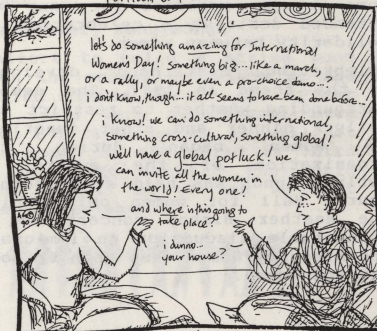 let's do something amazing for International
Women's Day! Something big... like a march,
or a rally, or maybe even a pro-choice demo...?
i don't know, though... it all seems to have been done before...
i know! we can do something international,
something cross-cultural, something global!
we'll have a global potluck! we
can invite all the women in
the world! Every one!
and where is this going to
take place?
i dunno...
your house?